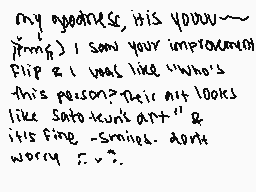 my goodness, it is youuu~
I saw your improvement
flip & I was like "who's
this person? Their art looks
like Sato-kun's art" &
it's fine -smiles- don't
worry